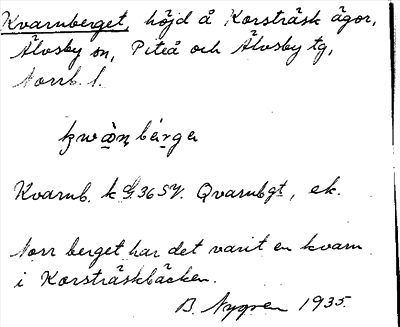 Kvarnberget, höjd å Korsträsk ägor,
Älvsby sn, Piteå och Älvsby tg,
Norrb. l.
Kvarnb. k G. 36 SV. Qvarnbgt, ek.
Norr berget har det varit en kvarn
i Korsträskbäcken.
B. Nygren 1935.